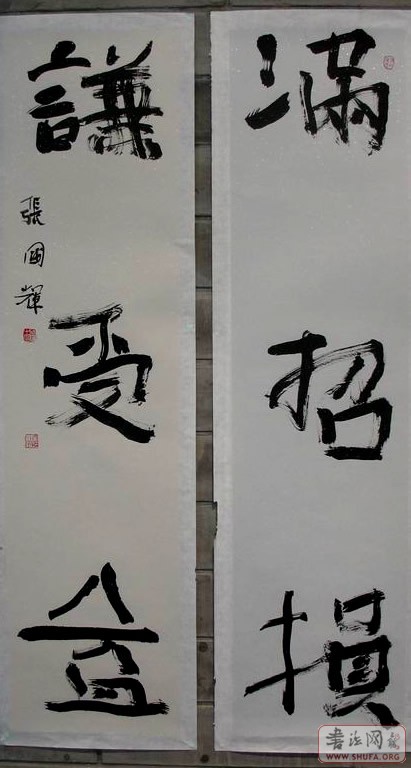 滿招損
謙受益
張國輝
書法网
WWW.SHUFA.ORG